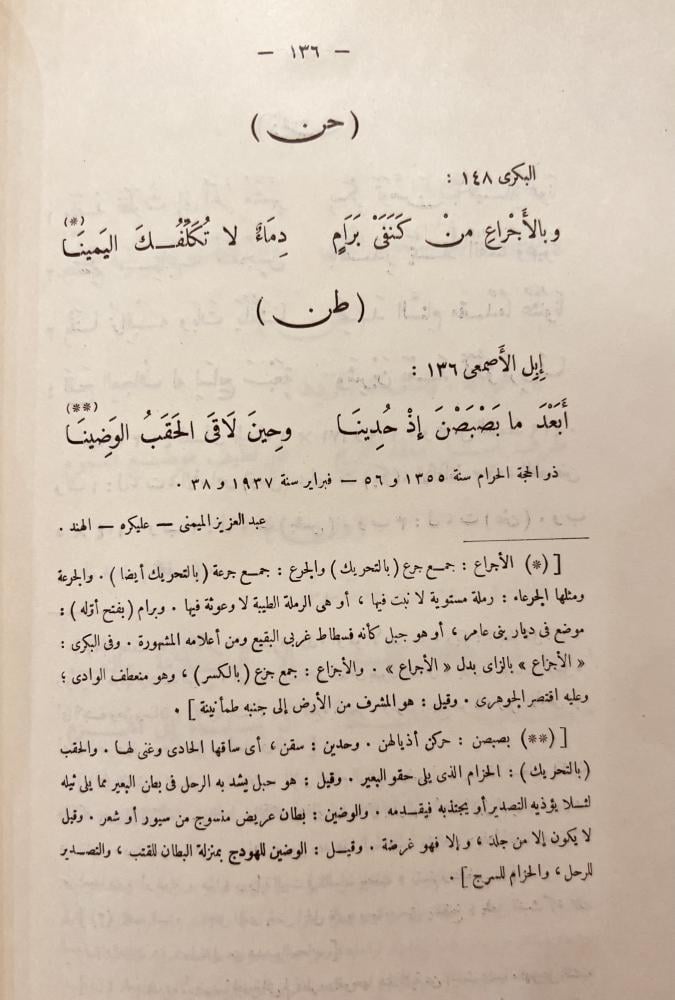 — ١٣٦ —
( حن )
البكرى ١٤٨ :
وبالأَجْراعِ منْ كَنَفَىْ بَرَامٍ دِمَاءٌ لا تُكَلِّفُكَ اليَمينَا (*)
( طن )
إِبِل الأَصمعى ١٣٦ :
أَبَعْدَ ما بَصْبَصْنَ إِذْ حُدِينَا وحِينَ لَاقَى الحَقَبُ الوَضِينَا (**)
ذو الحجة الحرام سنة ١٣٥٥ و ٥٦ — فبراير سنة ١٩٣٧ و ٣٨ .
عبد العزيز الميمنى — عليكره — الهند .
[ (*) الأجراع : جمع جرع (بالتحريك) والجرع : جمع جرعة (بالتحريك أيضا) . والجرعة
ومثلها الجرعاء : رملة مستوية لا نبت فيها ، أو هى الرملة الطيبة لا وعوثة فيها . وبرام (بفتح أوّله) :
موضع فى ديار بنى عامر ، أو هو جبل كأنه فسطاط غربى البقيع ومن أعلامه المشهورة . وفى البكرى :
« الأجزاع » بالزاى بدل « الأجراع » . والأجزاع : جمع جزع (بالكسر) ، وهو منعطف الوادى ؛
وعليه اقتصر الجوهرى . وقيل : هو المشرف من الأرض إلى جنبه طمأنينة ] .
[ (**) بصبصن : حركن أذيالهن . وحدين : سقن ، أى ساقها الحادى وغنى لها . والحقب
(بالتحريك) : الحزام الذى يلى حقو البعير . وقيل : هو حبل يشد به الرحل فى بطن البعير مما يلى ثيله
لئلا يؤذيه التصدير أو يجتذبه فيقدمه . والوضين : بطان عريض منسوج من سيور أو شعر . وقيل
لا يكون إلا من جلد ، وإلا فهو غرضة . وقيل : الوضين للهودج بمنزلة البطان للقتب ، والتصدير
للرحل ، والحزام للسرج ] .